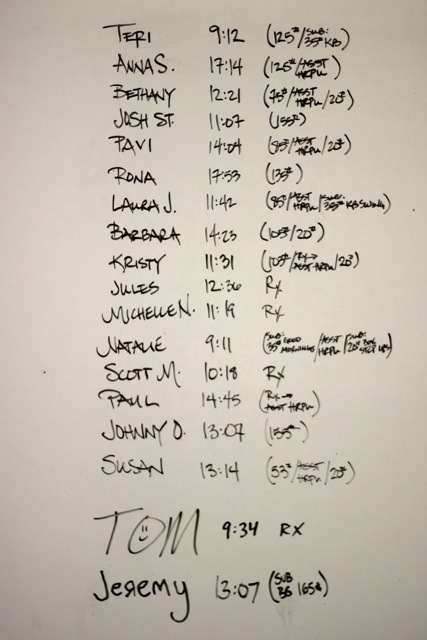 TERI 9:12 (125#/SUB: 35# KB)
ANNA S. 17:14 (125#/ASST HRPU)
BETHANY 12:21 (75#/ASST HRPU/20#)
JOSH ST. 11:07 (155#)
PAVI 14:04 (85#/ASST HRPU/20#)
RONA 17:53 (135#)
LAURA J. 11:42 (85#/ASST HRPU/SUB: 35# KB SWING)
BARBARA 14:23 (105#/20#)
KRISTY 11:31 (105#/RX→ ASST HRPU/20#)
JULES 12:36 RX
MICHELLE N. 11:19 RX
NATALIE 9:11 (SUB: 35# GOOD MORNINGS/ASST HRPU/SUB: 20# BOX STEP UPS)
SCOTT M. 10:18 RX
PAUL 14:45 (RX→ ASST HRPU)
JOHNNY O. 13:07 (155#)
SUSAN 13:14 (53#/ASST HRPU/20#)
TOM 9:34 RX
Jeremy 13:07 (SUB BS 165#)